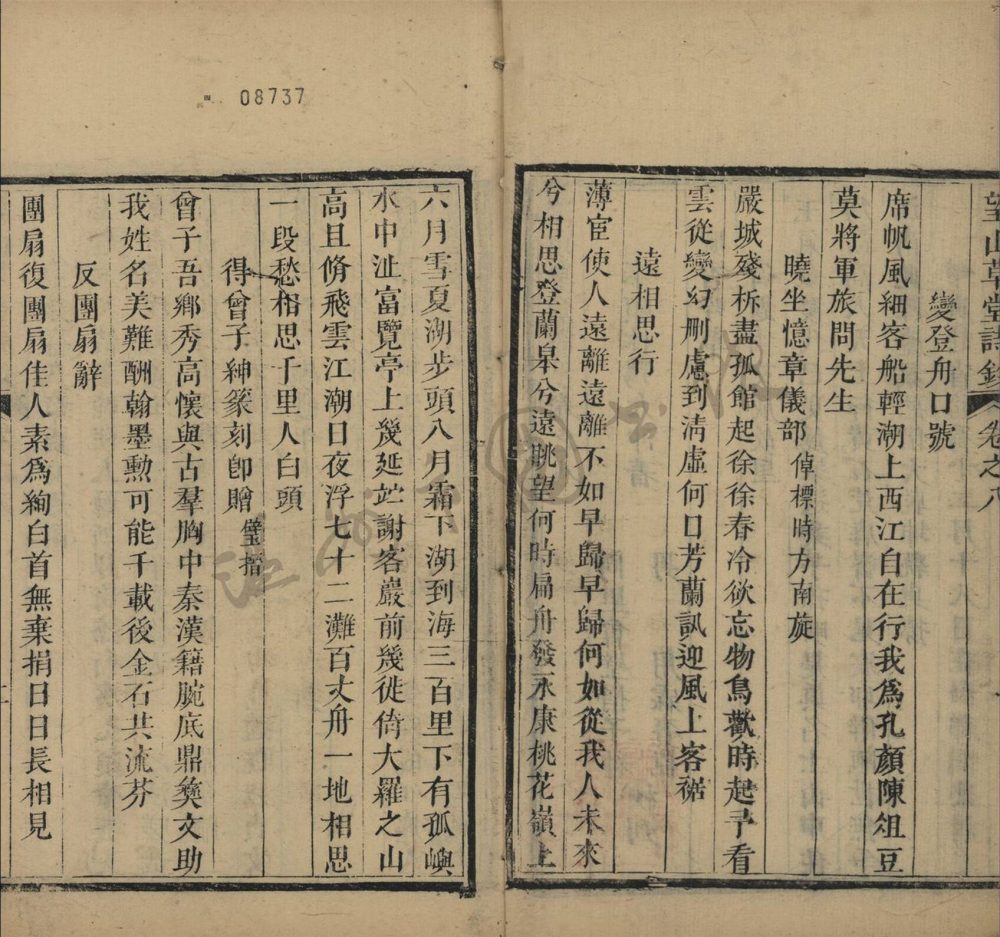 望山草堂詩鈔 卷之八
變登舟口號
席帆風細客船輕潮上西江自在行我爲孔顏陳俎豆
莫將軍旅問先生
曉坐憶章儀部倬標時方南旋
嚴城殘柝盡孤館起徐徐春冷欲忘物鳥歡時起予看
雲從變幻刪慮到淸虛何日芳蘭訊迎風上客裾
遠相思行
薄宦使人遠離遠離不如早歸早歸何如從我人未來
兮相思登蘭皋兮遠眺望何時扁舟發永康桃花嶺上
08737
六月雪夏湖步頭八月霜下湖到海三百里下有孤嶼
水中沚富覽亭上幾延竚謝客巖前幾徙倚大羅之山
高且脩飛雲江潮日夜浮七十二灘百丈舟一地相思
一段愁相思千里人白頭
得曾子紳篆刻卽贈璧搢
曾子吾鄕秀高懷與古羣胸中秦漢籍腕底鼎彝文助
我姓名美難酬翰墨勳可能千載後金石共流芬
反團扇辭
團扇復團扇佳人素爲絢白首無棄捐日日長相見